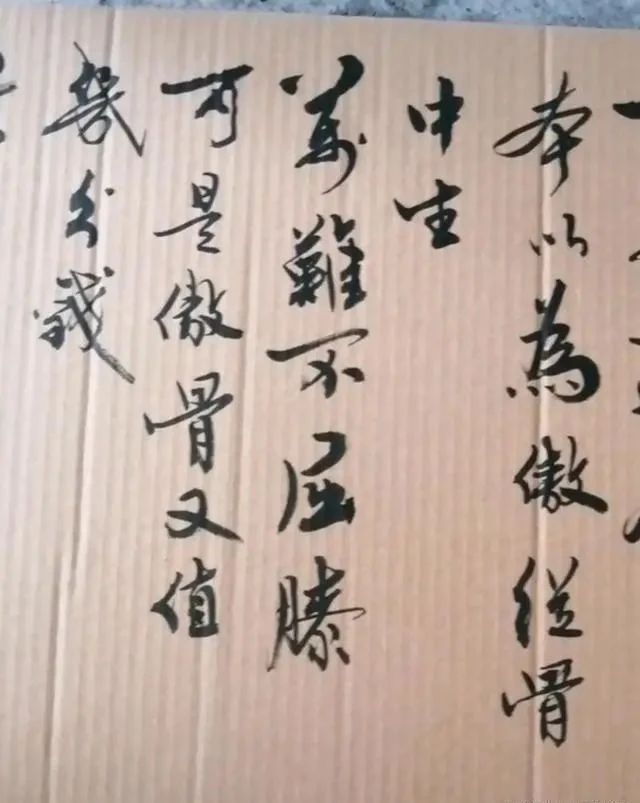 本以為傲從骨
中生
萬難不屈膝
可是傲骨又值
幾分錢